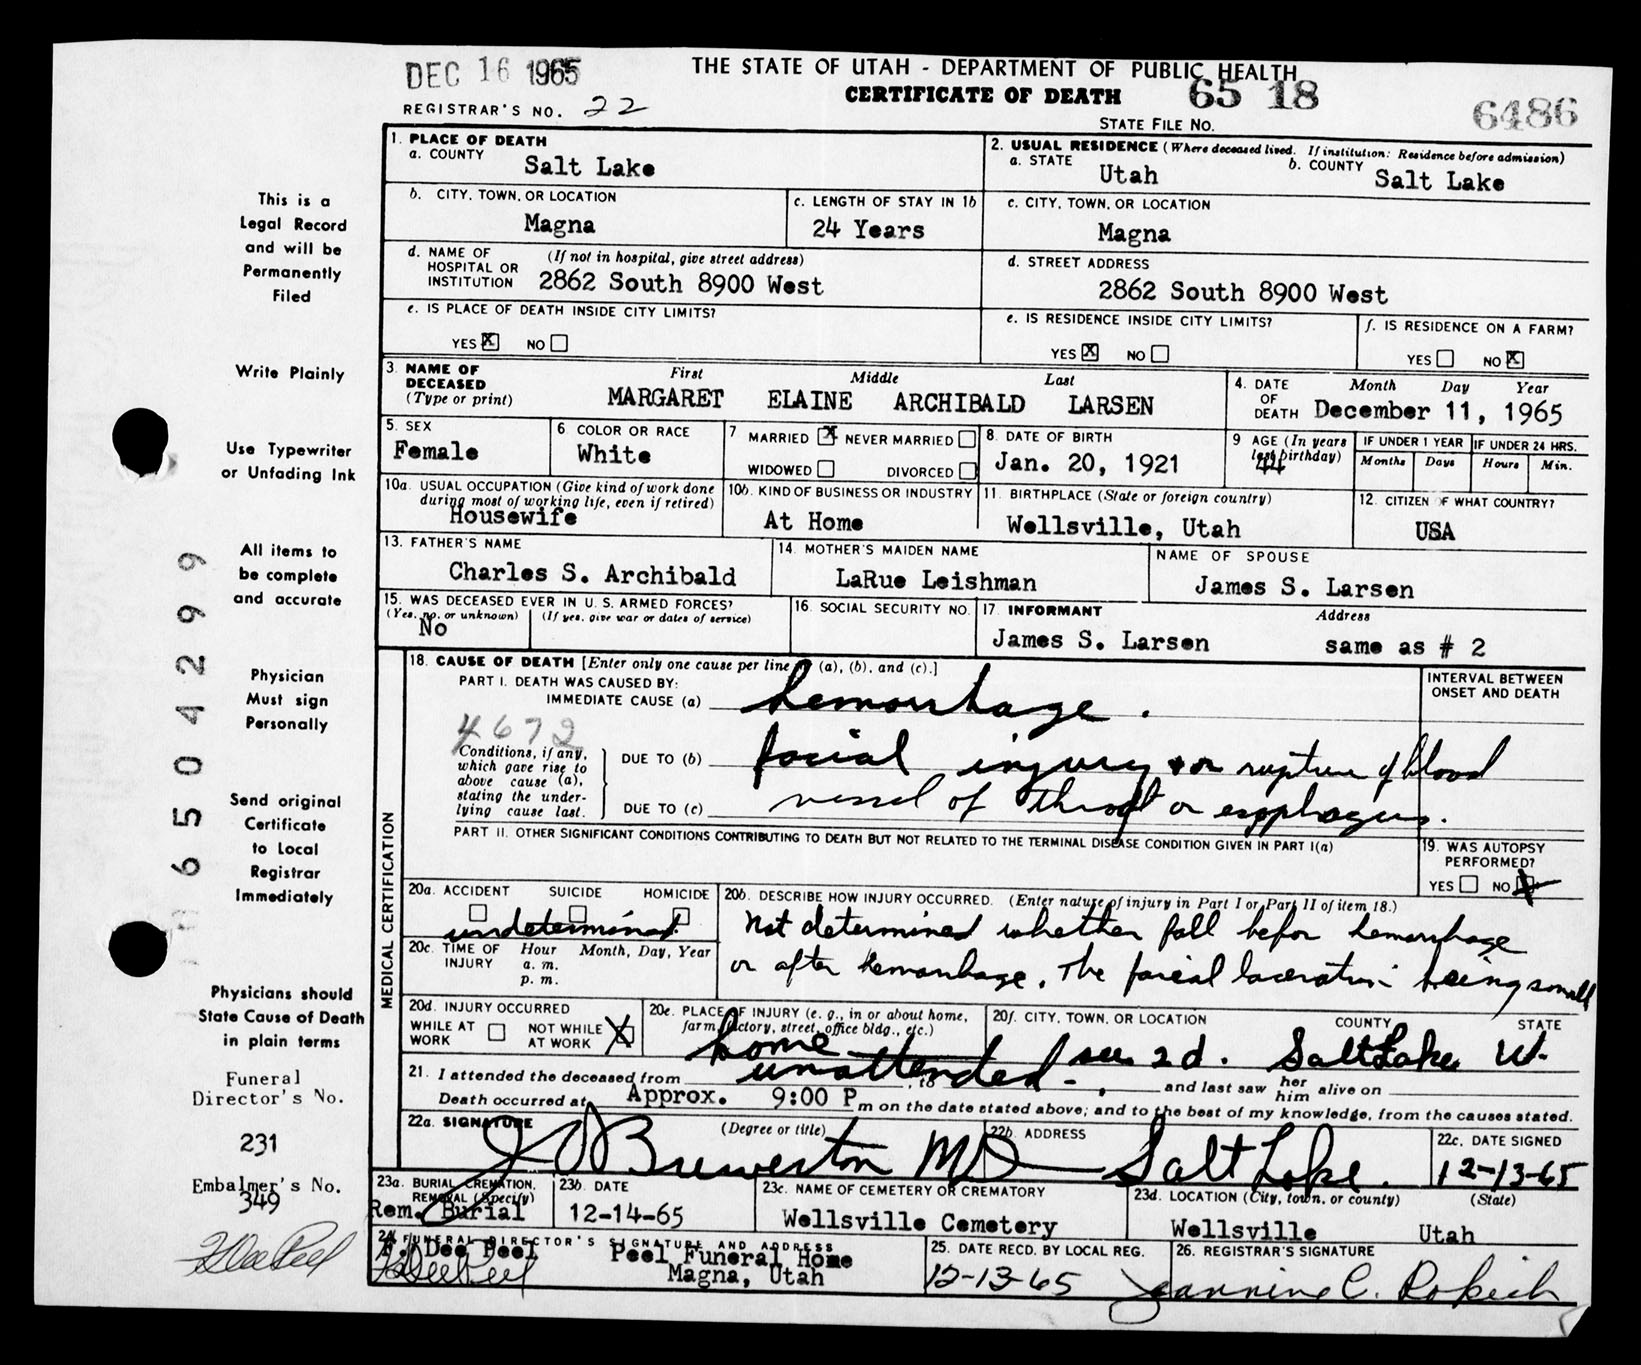 DEC 16 1965
THE STATE OF UTAH - DEPARTMENT OF PUBLIC HEALTH
CERTIFICATE OF DEATH 65 18
REGISTRAR'S NO. 22
STATE FILE NO.
6486
This is a
Legal Record
and will be
Permanently
Filed
Write Plainly
Use Typewriter
or Unfading Ink
All items to
be complete
and accurate
Physician
Must sign
Personally
Send original
Certificate
to Local
Registrar
Immediately
Physicians should
State Cause of Death
in plain terms
Funeral
Director's No.
231
Embalmer's No.
349
65 04299
1. PLACE OF DEATH
a. COUNTY Salt Lake
2. USUAL RESIDENCE (Where deceased lived. If institution: Residence before admission)
a. STATE Utah b. COUNTY Salt Lake
b. CITY, TOWN, OR LOCATION Magna
c. LENGTH OF STAY IN 1b 24 Years
c. CITY, TOWN, OR LOCATION Magna
d. NAME OF HOSPITAL OR INSTITUTION (If not in hospital, give street address)
2862 South 8900 West
d. STREET ADDRESS
2862 South 8900 West
e. IS PLACE OF DEATH INSIDE CITY LIMITS?
YES X NO
e. IS RESIDENCE INSIDE CITY LIMITS?
YES X NO
f. IS RESIDENCE ON A FARM?
YES NO X
3. NAME OF DECEASED (Type or print)
First Middle Last
MARGARET ELAINE ARCHIBALD LARSEN
4. DATE OF DEATH Month Day Year
December 11, 1965
5. SEX Female
6. COLOR OR RACE White
7 MARRIED X NEVER MARRIED
WIDOWED DIVORCED
8. DATE OF BIRTH Jan. 20, 1921
9 AGE (In years last birthday) 44
IF UNDER 1 YEAR Months Days
IF UNDER 24 HRS. Hours Min.
10a. USUAL OCCUPATION (Give kind of work done during most of working life, even if retired)
Housewife
10b. KIND OF BUSINESS OR INDUSTRY
At Home
11. BIRTHPLACE (State or foreign country)
Wellsville, Utah
12. CITIZEN OF WHAT COUNTRY?
USA
13. FATHER'S NAME
Charles S. Archibald
14. MOTHER'S MAIDEN NAME
LaRue Leishman
NAME OF SPOUSE
James S. Larsen
15. WAS DECEASED EVER IN U. S. ARMED FORCES?
(Yes, no, or unknown) (If yes, give war or dates of service)
No
16. SOCIAL SECURITY NO.
17. INFORMANT Address
James S. Larsen same as # 2
MEDICAL CERTIFICATION
18. CAUSE OF DEATH [Enter only one cause per line (a), (b), and (c).]
PART I. DEATH WAS CAUSED BY:
IMMEDIATE CAUSE (a) hemorrhage.
INTERVAL BETWEEN ONSET AND DEATH
4672
Conditions, if any, which gave rise to above cause (a), stating the underlying cause last.
DUE TO (b) facial injury & or rupture of blood
DUE TO (c) vessel of throat or esophagus.
PART II. OTHER SIGNIFICANT CONDITIONS CONTRIBUTING TO DEATH BUT NOT RELATED TO THE TERMINAL DISEASE CONDITION GIVEN IN PART I(a)
19. WAS AUTOPSY PERFORMED?
YES NO X
20a. ACCIDENT SUICIDE HOMICIDE
undetermined
20b. DESCRIBE HOW INJURY OCCURRED. (Enter nature of injury in Part I or Part II of item 18.)
Not determined whether fall before hemorrhage
or after hemorrhage. The facial laceration being small
20c. TIME OF INJURY Hour Month, Day, Year
a. m.
p. m.
20d. INJURY OCCURRED
WHILE AT WORK NOT WHILE AT WORK X
20e. PLACE OF INJURY (e. g., in or about home, farm, factory, street, office bldg., etc.)
home
20f. CITY, TOWN, OR LOCATION COUNTY STATE
see 2d. Salt Lake Ut.
21. I attended the deceased from unattended, to and last saw her him alive on
Death occurred at Approx. 9:00 P m on the date stated above; and to the best of my knowledge, from the causes stated.
22a. SIGNATURE (Degree or title)
J Brewerton MD
22b. ADDRESS
Salt Lake.
22c. DATE SIGNED
12-13-65
23a. BURIAL, CREMATION, REMOVAL (Specify)
Rem. Burial
23b. DATE
12-14-65
23c. NAME OF CEMETERY OR CREMATORY
Wellsville Cemetery
23d. LOCATION (City, town, or county) (State)
Wellsville Utah
24. FUNERAL DIRECTOR'S SIGNATURE AND ADDRESS
F. Dee Peel Peel Funeral Home
Magna, Utah
25. DATE RECD. BY LOCAL REG.
12-13-65
26. REGISTRAR'S SIGNATURE
Jeannine C. Rokich